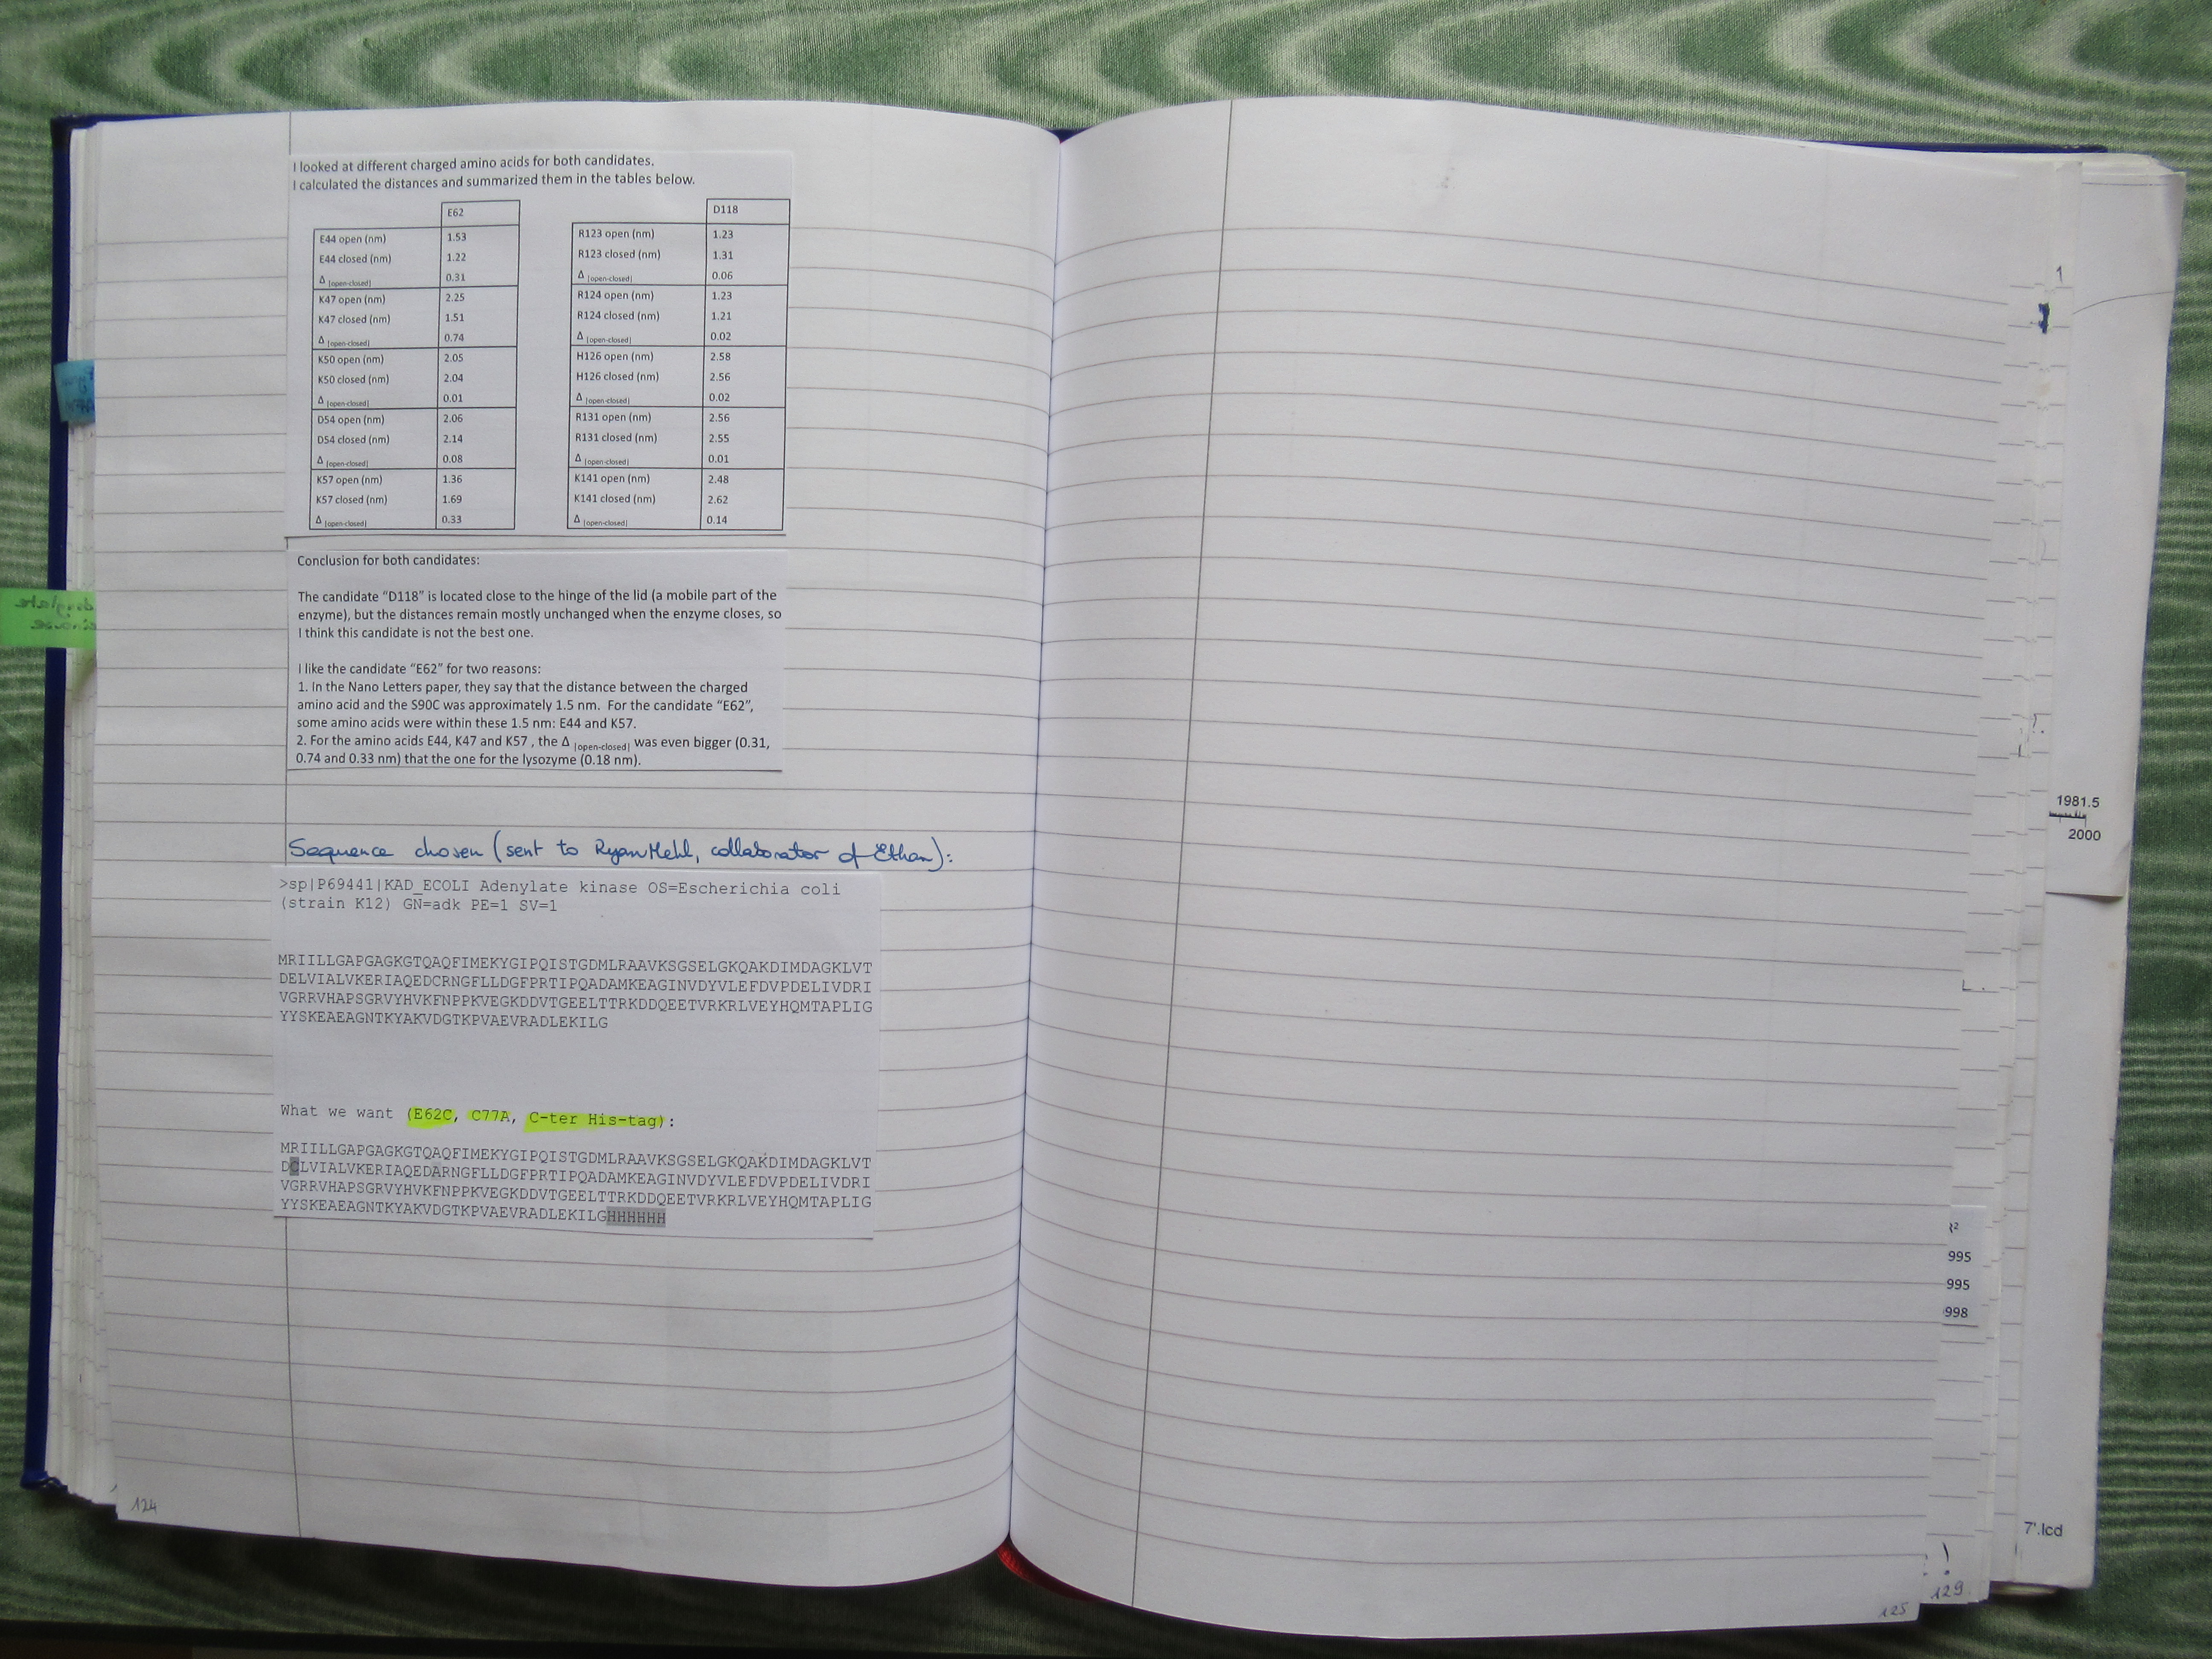 I looked at different charged amino acids for both candidates.
I calculated the distances and summarized them in the tables below.
E62
E44 open (nm) 1.53
E44 closed (nm) 1.22
Δ |open-closed| 0.31
K47 open (nm) 2.25
K47 closed (nm) 1.51
Δ |open-closed| 0.74
K50 open (nm) 2.05
K50 closed (nm) 2.04
Δ |open-closed| 0.01
D54 open (nm) 2.06
D54 closed (nm) 2.14
Δ |open-closed| 0.08
K57 open (nm) 1.36
K57 closed (nm) 1.69
Δ |open-closed| 0.33
D118
R123 open (nm) 1.23
R123 closed (nm) 1.31
Δ |open-closed| 0.06
R124 open (nm) 1.23
R124 closed (nm) 1.21
Δ |open-closed| 0.02
H126 open (nm) 2.58
H126 closed (nm) 2.56
Δ |open-closed| 0.02
R131 open (nm) 2.56
R131 closed (nm) 2.55
Δ |open-closed| 0.01
K141 open (nm) 2.48
K141 closed (nm) 2.62
Δ |open-closed| 0.14
Conclusion for both candidates:
The candidate “D118” is located close to the hinge of the lid (a mobile part of the
enzyme), but the distances remain mostly unchanged when the enzyme closes, so
I think this candidate is not the best one.
I like the candidate “E62” for two reasons:
1. In the Nano Letters paper, they say that the distance between the charged
amino acid and the S90C was approximately 1.5 nm. For the candidate “E62”,
some amino acids were within these 1.5 nm: E44 and K57.
2. For the amino acids E44, K47 and K57 , the Δ |open-closed| was even bigger (0.31,
0.74 and 0.33 nm) that the one for the lysozyme (0.18 nm).
Sequence chosen (sent to Ryan Mehl, collaborator of Ethan):
>sp|P69441|KAD_ECOLI Adenylate kinase OS=Escherichia coli
(strain K12) GN=adk PE=1 SV=1
MRIILLGAPGAGKGTQAQFIMEKYGIPQISTGDMLRAAVKSGSELGKQAKDIMDAGKLVT
DELVIALVKERIAQEDCRNGFLLDGFPRTIPQADAMKEAGINVDYVLEFDVPDELIVDRI
VGRRVHAPSGRVYHVKFNPPKVEGKDDVTGEELTTRKDDQEETVRKRLVEYHQMTAPLIG
YYSKEAEAGNTKYAKVDGTKPVAEVRADLEKILG
What we want (E62C, C77A, C-ter His-tag):
MRIILLGAPGAGKGTQAQFIMEKYGIPQISTGDMLRAAVKSGSELGKQAKDIMDAGKLVT
DCLVIALVKERIAQEDARNGFLLDGFPRTIPQADAMKEAGINVDYVLEFDVPDELIVDRI
VGRRVHAPSGRVYHVKFNPPKVEGKDDVTGEELTTRKDDQEETVRKRLVEYHQMTAPLIG
YYSKEAEAGNTKYAKVDGTKPVAEVRADLEKILGHHHHHH
124
1981.5
2000
995
995
998
7'.lcd
129
125